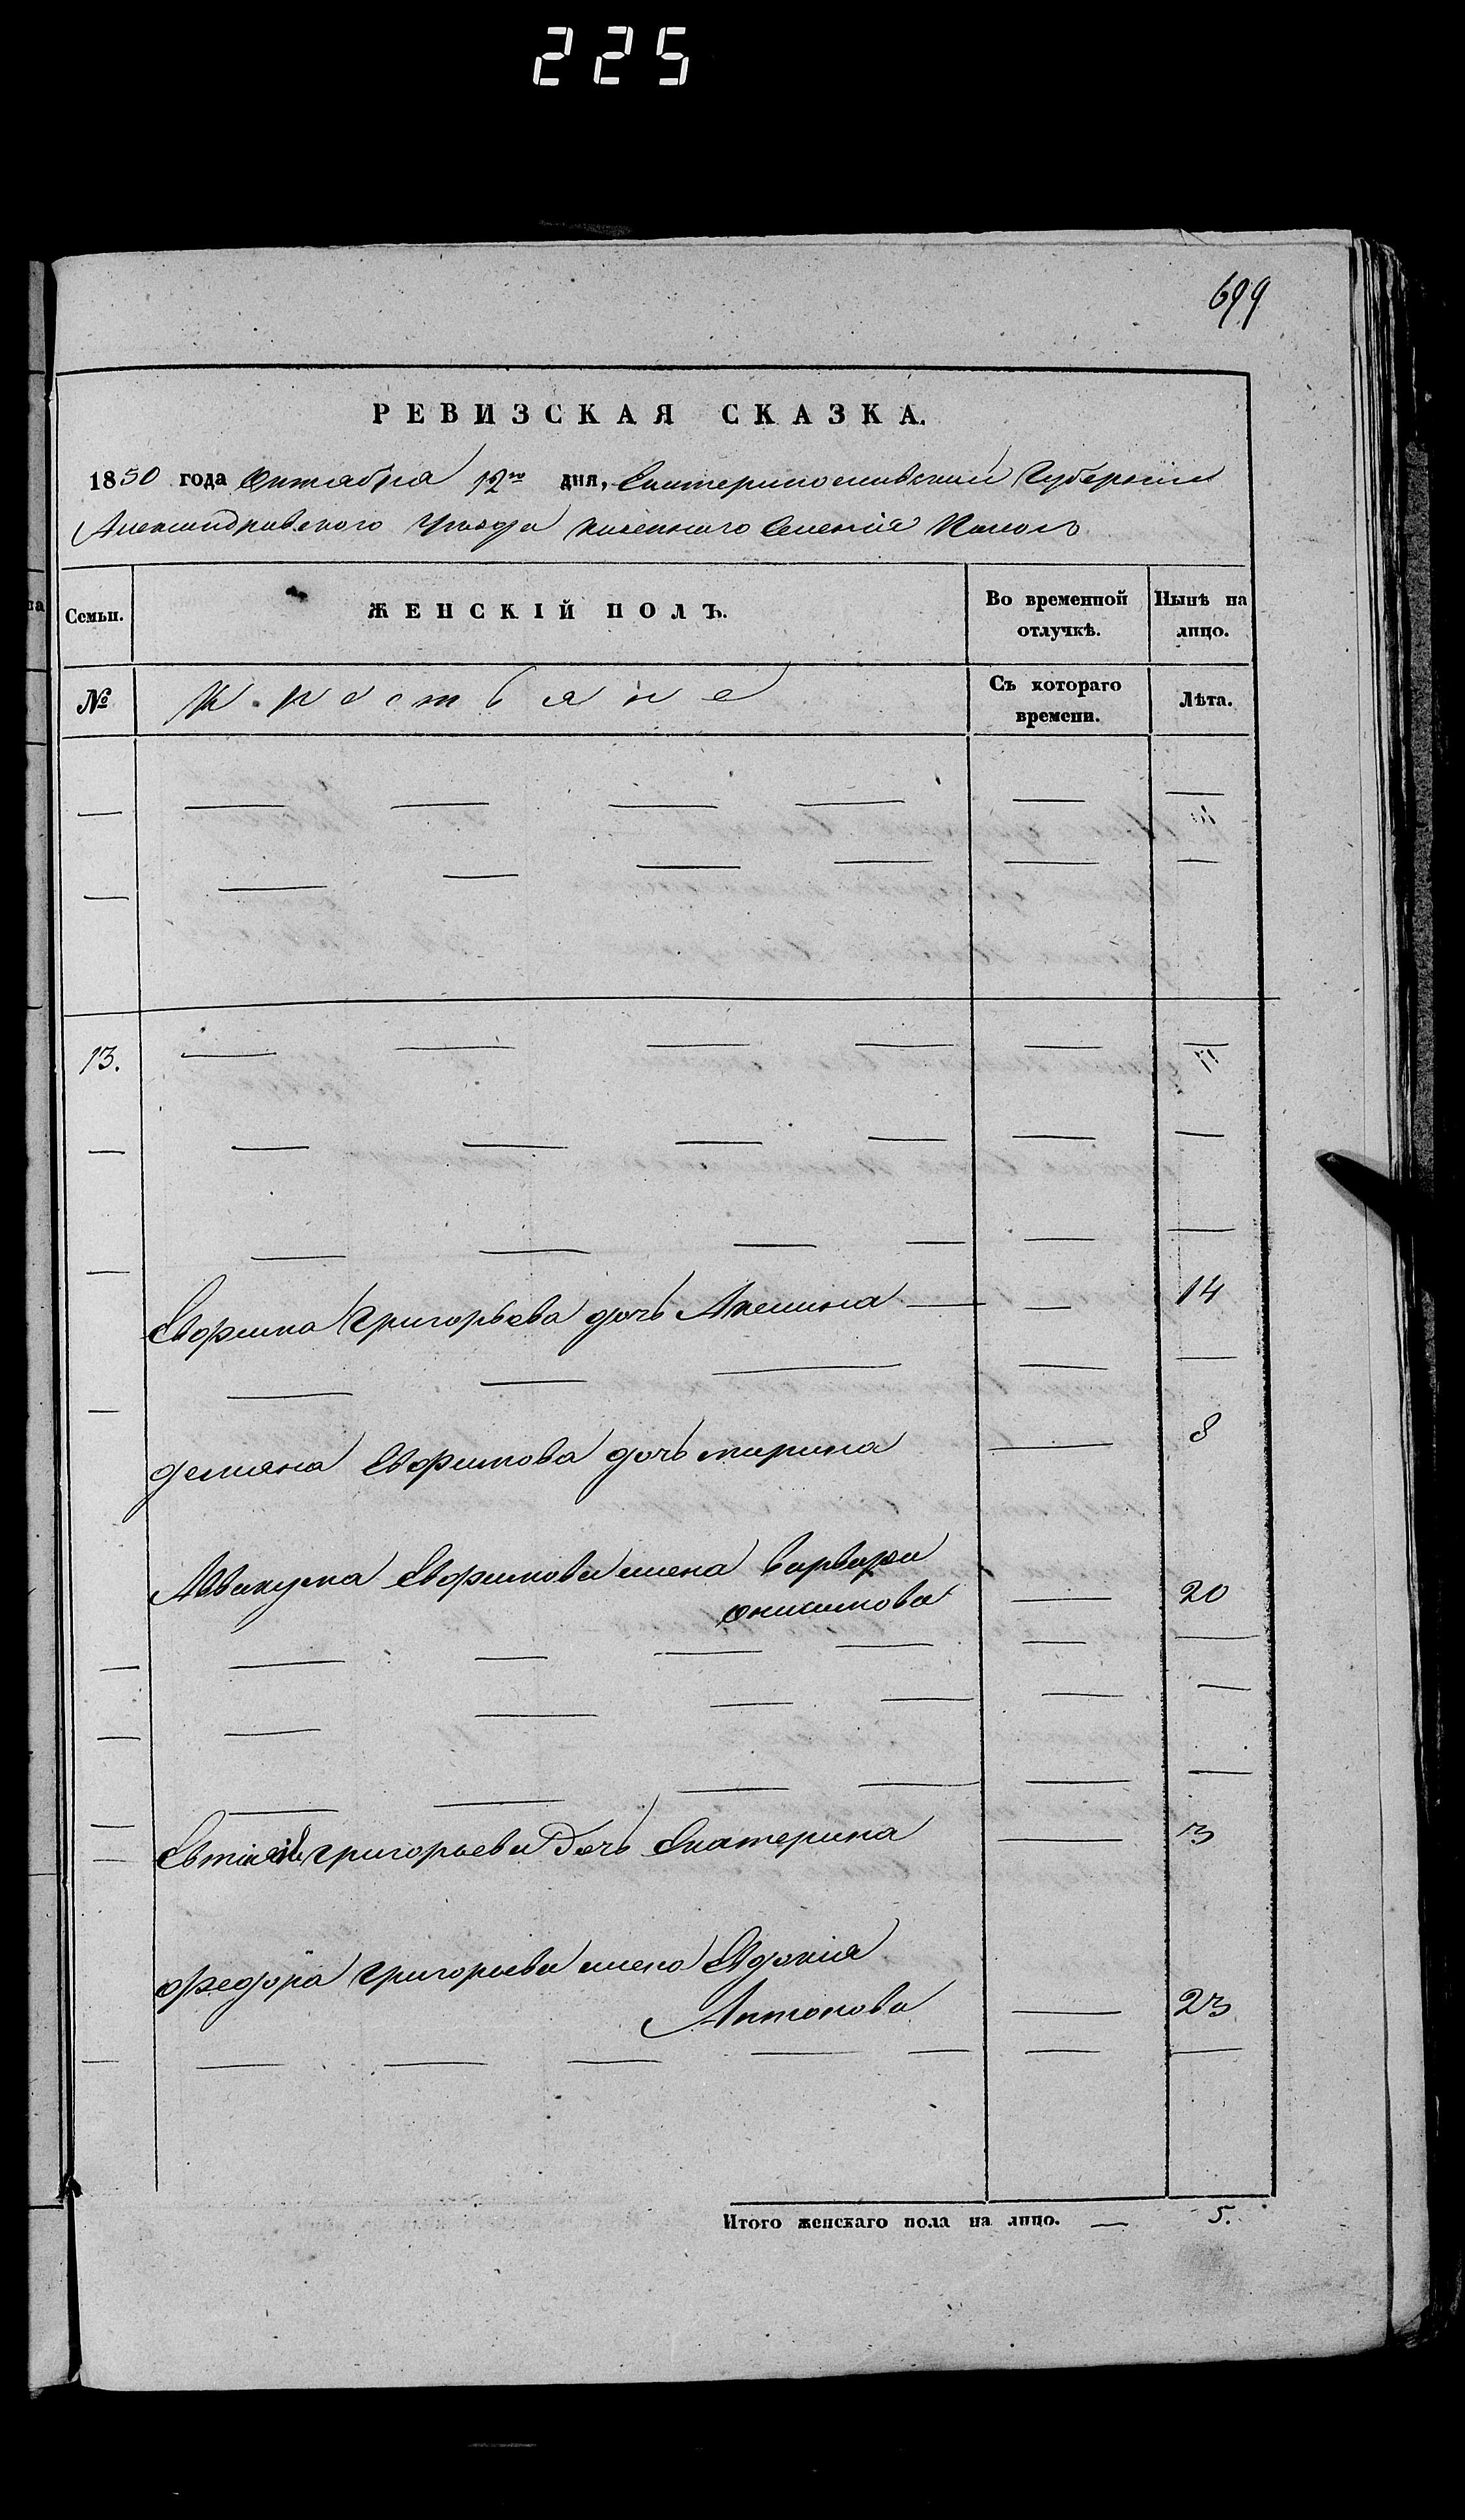 225
699
РЕВИЗСКАЯ СКАЗКА.
1850 года Октабря 12го дня, Екатеринославской Губернии
Александровского Уезда казенного Селения
Семьи.
ЖЕНСКІЙ ПОЛЪ.
Во временной отлучкѣ.
Нынѣ на лицо.
№
Крестьяне
Съ котораго времени.
Лѣта.
13.
Евфима Григорьева дочь Акелина 14
демяна Евфимова дочь марина 8
Аввакума Евфимова жена варвара
онисимова 20
григорьева Дочь Екатерина 3
федора григорьева жена Евдокия
Антонова 23
Итого женскаго пола на лицо. — 5.